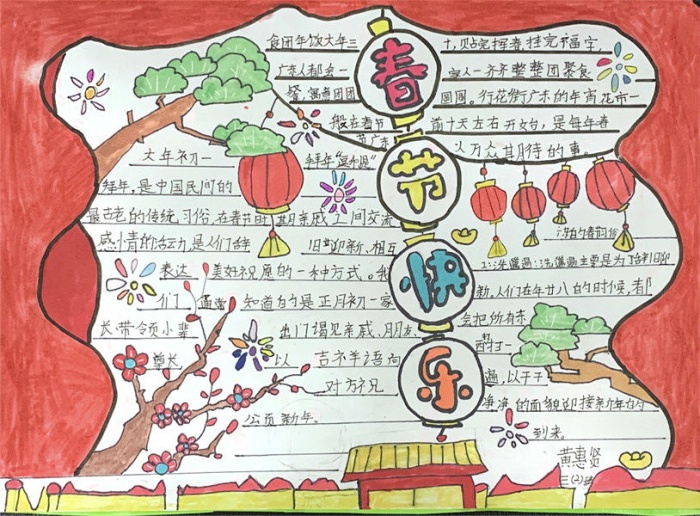 食团年饭大年三十,贴完挥春挂完福字,
广东人都会一家人一齐整整团聚食
餐,寓意团团圆圆。行花街广东的年宵花市一
般在春节前十天左右开始,是每年春
节广东人万众期待的事
春
节
快
乐
大年初一
拜年"逗利是"
拜年,是中国民间的
最古老的传统习俗,在春节时期亲戚之间交流
感情的活动,是人们辞旧迎新、相互
表达美好祝愿的一种方式。我
们通常知道的是正月初一家
长带领小辈出门谒见亲戚、朋友、
尊长以吉祥语向
对方祝
新年。
1:洗邋遢:洗邋遢主要是为了辞旧迎
新。人们在年廿八的时候,都
会把所有东
西打扫一
遍,以干干
净净的面貌迎接新年的
到来。
黄惠贤
三(2)班